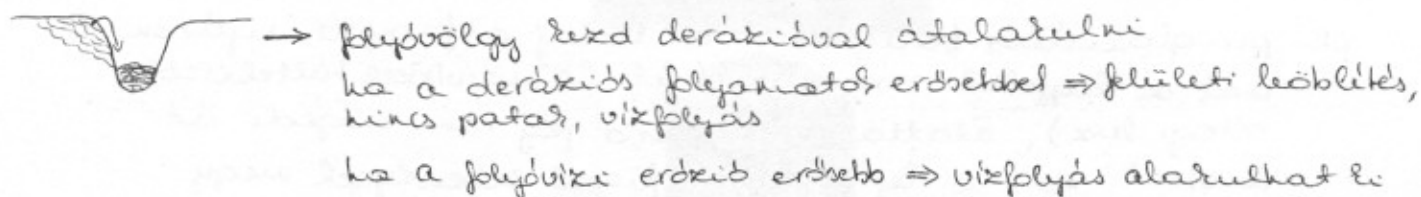 → folyóvölgy kezd derázióval átalakulni
ha a deráziós folyamatok erősebbek ⇒ felületi leöblítés,
nincs patak, vízfolyás
ha a folyóvízi erózió erősebb ⇒ vízfolyás alakulhat ki